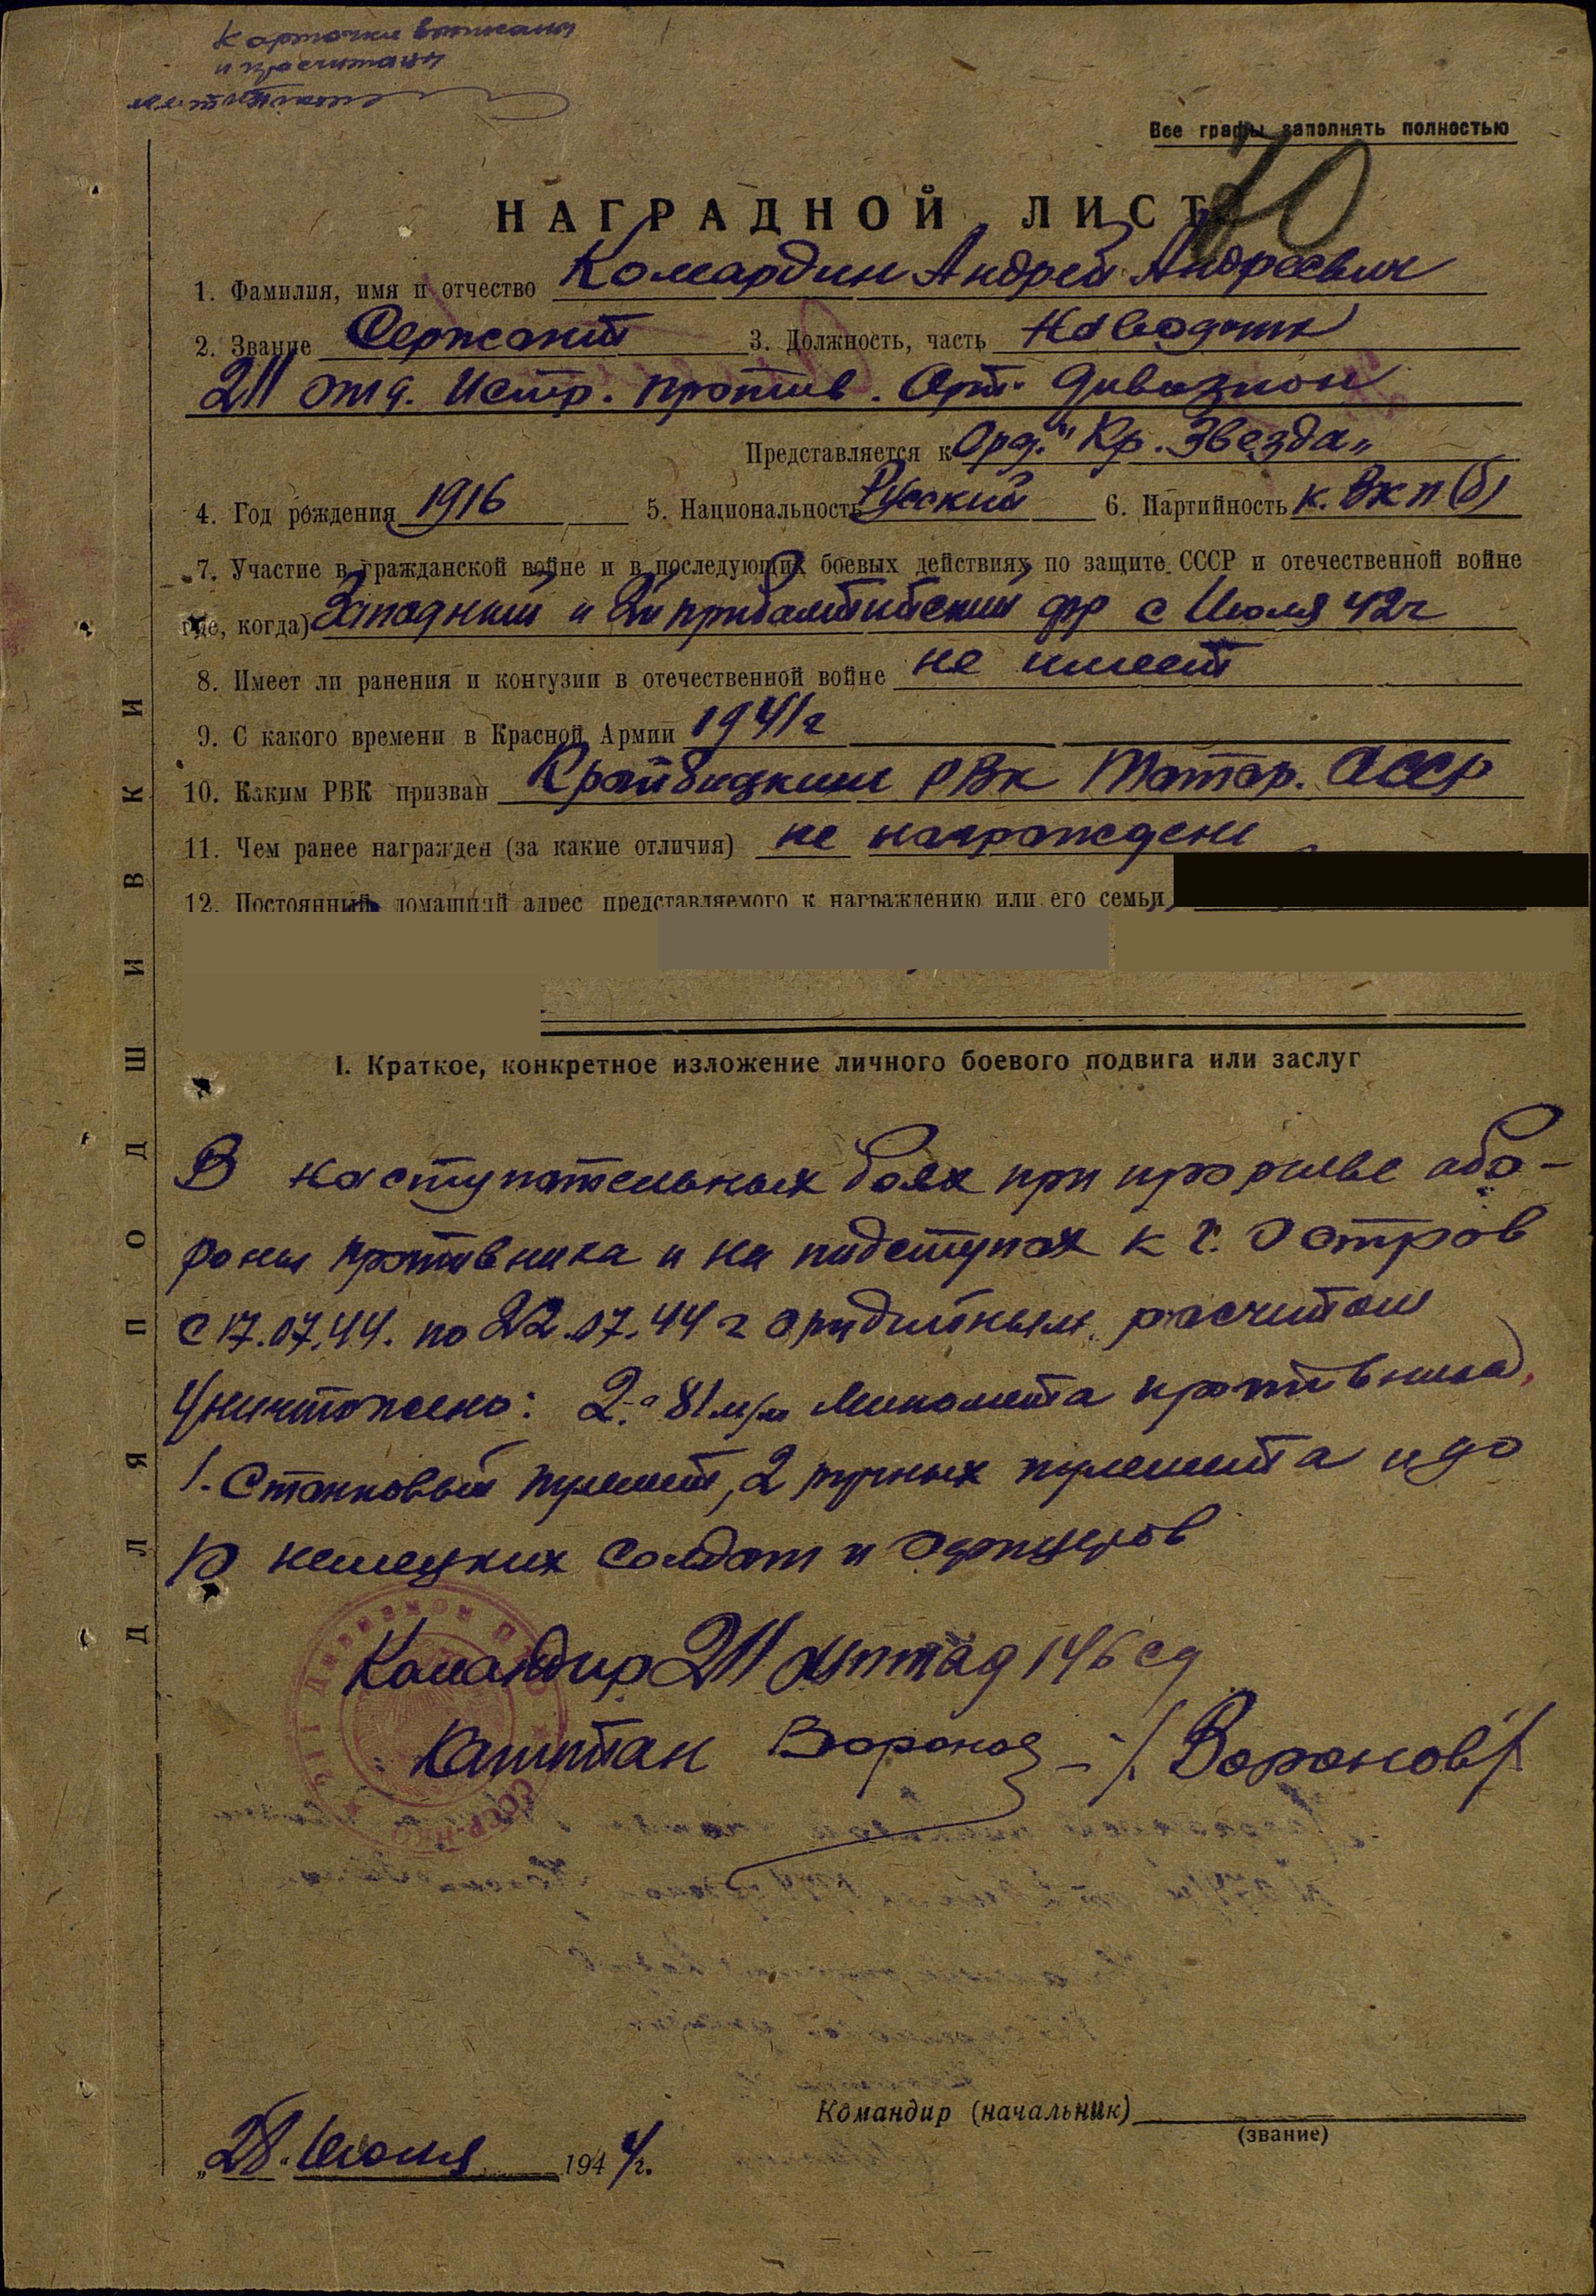 Карточки выписаны
и просчитаны
Все графы заполнять полностью
70
НАГРАДНОЙ ЛИСТ
1. Фамилия, имя и отчество Комардин Андрей Андреевич
2. Звание Сержант 3. Должность, часть Наводчик
211 отд. Истр. против. Арт. дивизион
Представляется к Орд. "Кр. Звезда"
4. Год рождения 1916 5. Национальность Русский 6. Партийность к. ВКП(б)
7. Участие в гражданской войне и в последующих боевых действиях по защите СССР и отечественной войне
где, когда) Западный и 3й прибалтийский фр с Июля 42г
8. Имеет ли ранения и контузии в отечественной войне не имеет
9. С какого времени в Красной Армии 1941г
10. Каким РВК призван Кройбицким РВК Татар. АССР
11. Чем ранее награжден (за какие отличия) не награжден
12. Постоянный домашний адрес представляемого к награждению или его семьи
I. Краткое, конкретное изложение личного боевого подвига или заслуг
В наступательных боях при прорыве обо-
роны противника и на подступах к г. Остров
с 17.07.44. по 22.07.44 г орудийным расчитом
Уничтожено: 2-а 81 м/м Миномета противника,
1. Станковый пулемет, 2 ручных пулемета и до
10 немецких солдат и офицеров
Командир 211 оиптад 146 сд
Капитан Воронов - /Воронов/
211 Дивизион
СССР-НКО
Командир (начальник)
(звание)
„28" Июля 1944г.
ДЛЯ ПОДШИВКИ